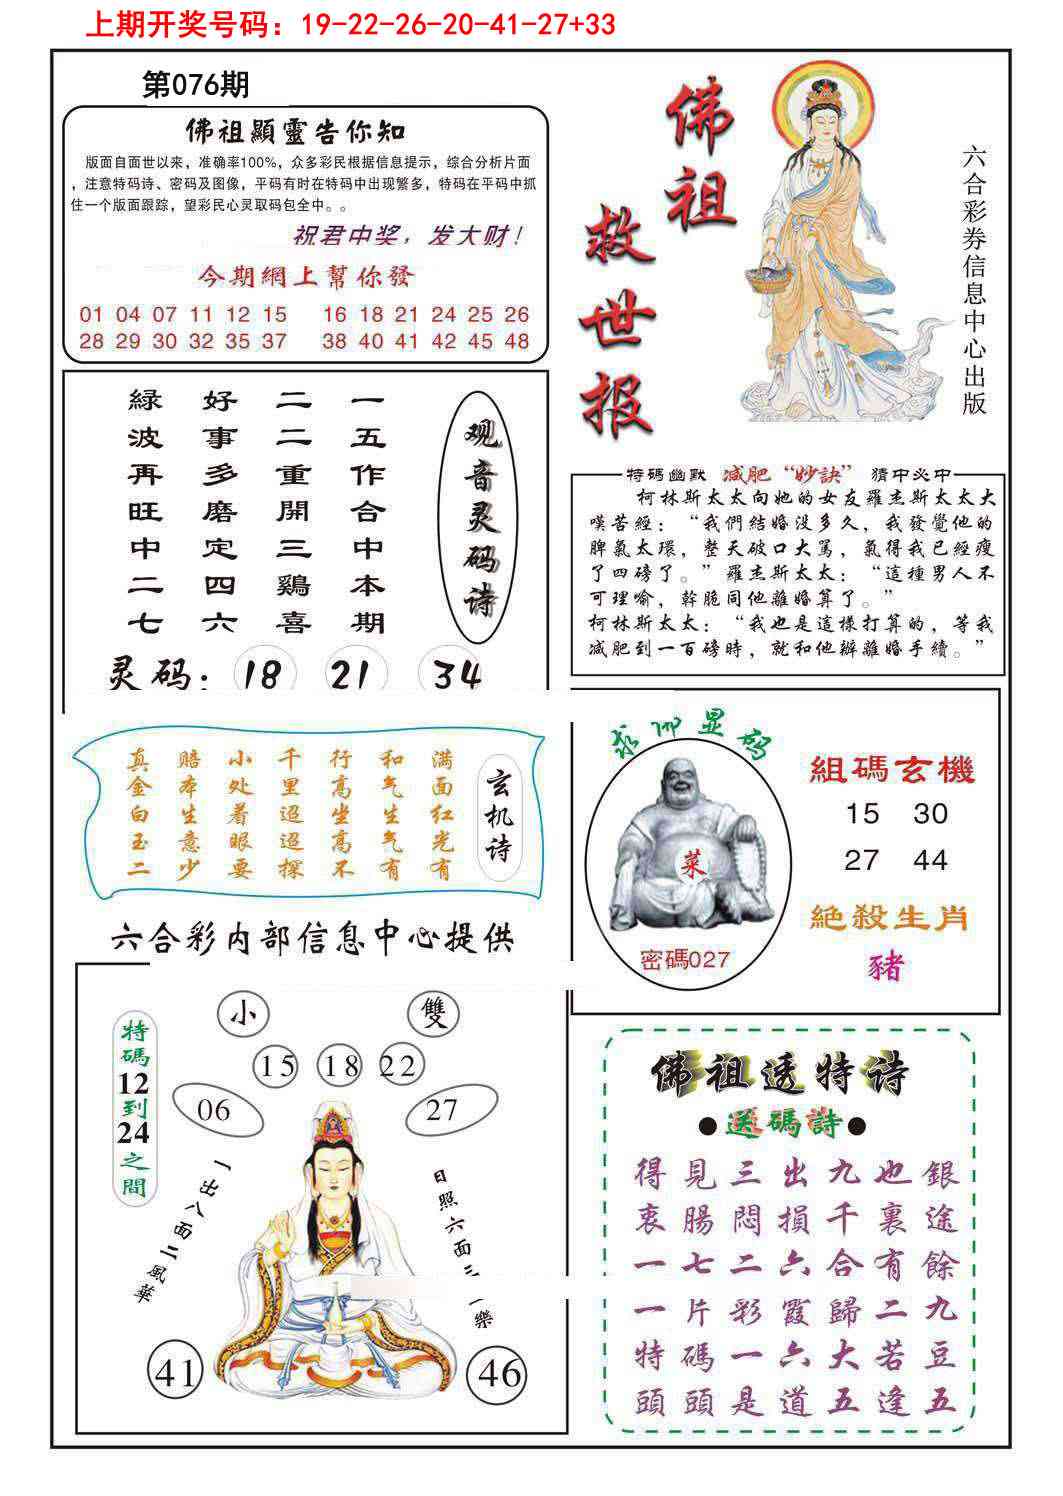 上期开奖号码：19-22-26-20-41-27+33
第076期
佛祖顯靈告你知
版面自面世以来，准确率100%，众多彩民根据信息提示，综合分析片面
，注意特码诗、密码及图像，平码有时在特码中出现繁多，特码在平码中抓
住一个版面跟踪，望彩民心灵取码包全中。。
祝君中奖，发大财！
今期網上幫你發
01 04 07 11 12 15 16 18 21 24 25 26
28 29 30 32 35 37 38 40 41 42 45 48
佛祖
救世报
六合彩券信息中心出版
观音灵码诗
一五作合中本期
二二重開三鷄喜
好事多磨定四六
緑波再旺中二七
灵码：18 21 34
特碼幽默 减肥“妙訣” 猜中必中
柯林斯太太向她的女友羅杰斯太太大
嘆苦經：“我們結婚没多久，我發覺他的
脾氣太壞，整天破口大罵，氣得我已經瘦
了四磅了。”羅杰斯太太：“這種男人不
可理喻，幹脆同他離婚算了。”
柯林斯太太：“我也是這樣打算的，等我
减肥到一百磅時，就和他辦離婚手續。”
玄机诗
满面红光有
和气生气有
行高坐高不
千里迢迢探
小处着眼要
赔本生意少
真金白玉二
六合彩内部信息中心提供
求佛显码
菜
密碼027
組碼玄機
15 30
27 44
絶殺生肖
豬
特碼12到24之間
小 雙
15 18 22
06 27
一出八面二風華
日照六面三 樂
41 46
佛祖透特诗
●送碼詩●
得見三出九也銀
衷腸悶損千裏途
一七二六合有餘
一片彩霞歸二九
特碼一六大若豆
頭頭是道五逢五